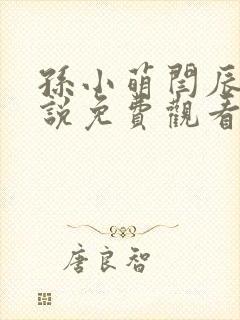 孫小萌閆辰
説免費觀看
唐良智